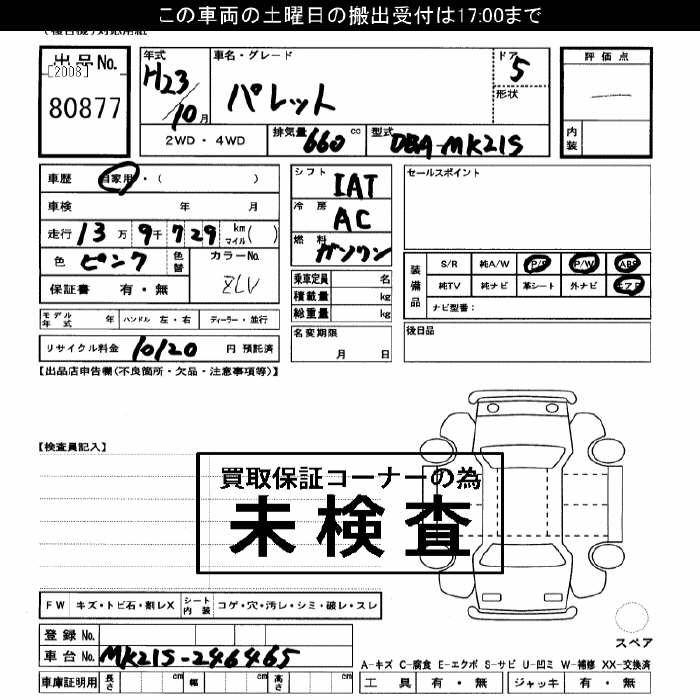 この車両の土曜日の搬出受付は17:00まで
(複合機)対応用紙
出品No.
[2008]
80877
年式
H23/10月
車名・グレード
パレット
ドア
5
形状
2WD・4WD
排気量 660 cc
型式 DBA-MK21S
評価点
―
内装
車歴 自家用・( )
車検 年 月
走行 13万9千729 km マイル( )
色 ピンク 色替
カラーNo.
ZLV
保証書 有・無
シフト IAT
冷房 AC
燃料 ガソリン
乗車定員 名
積載量 kg
総重量 kg
セールスポイント
装備品
S/R 純A/W P/S P/W ABS
純TV 純ナビ 革シート 外ナビ エアB
ナビ型番:
モデル年式 年 ハンドル 左・右 ディーラー・並行
リサイクル料金 10120 円 預託済
名変期限
月 日
後日品
【出品店申告欄(不良箇所・欠品・注意事項等)】
【検査員記入】
買取保証コーナーの為
未検査
FW キズ・トビ石・割レX シート内装 コゲ・穴・汚レ・シミ・破レ・スレ
登録No.
車台No. MK21S-246465
スペア
A-キズ C-腐食 E-エクボ S-サビ U-凹ミ W-補修 XX-交換済
車庫証明用 長さ cm 幅 cm 高さ cm
工具 有・無 ジャッキ 有・無